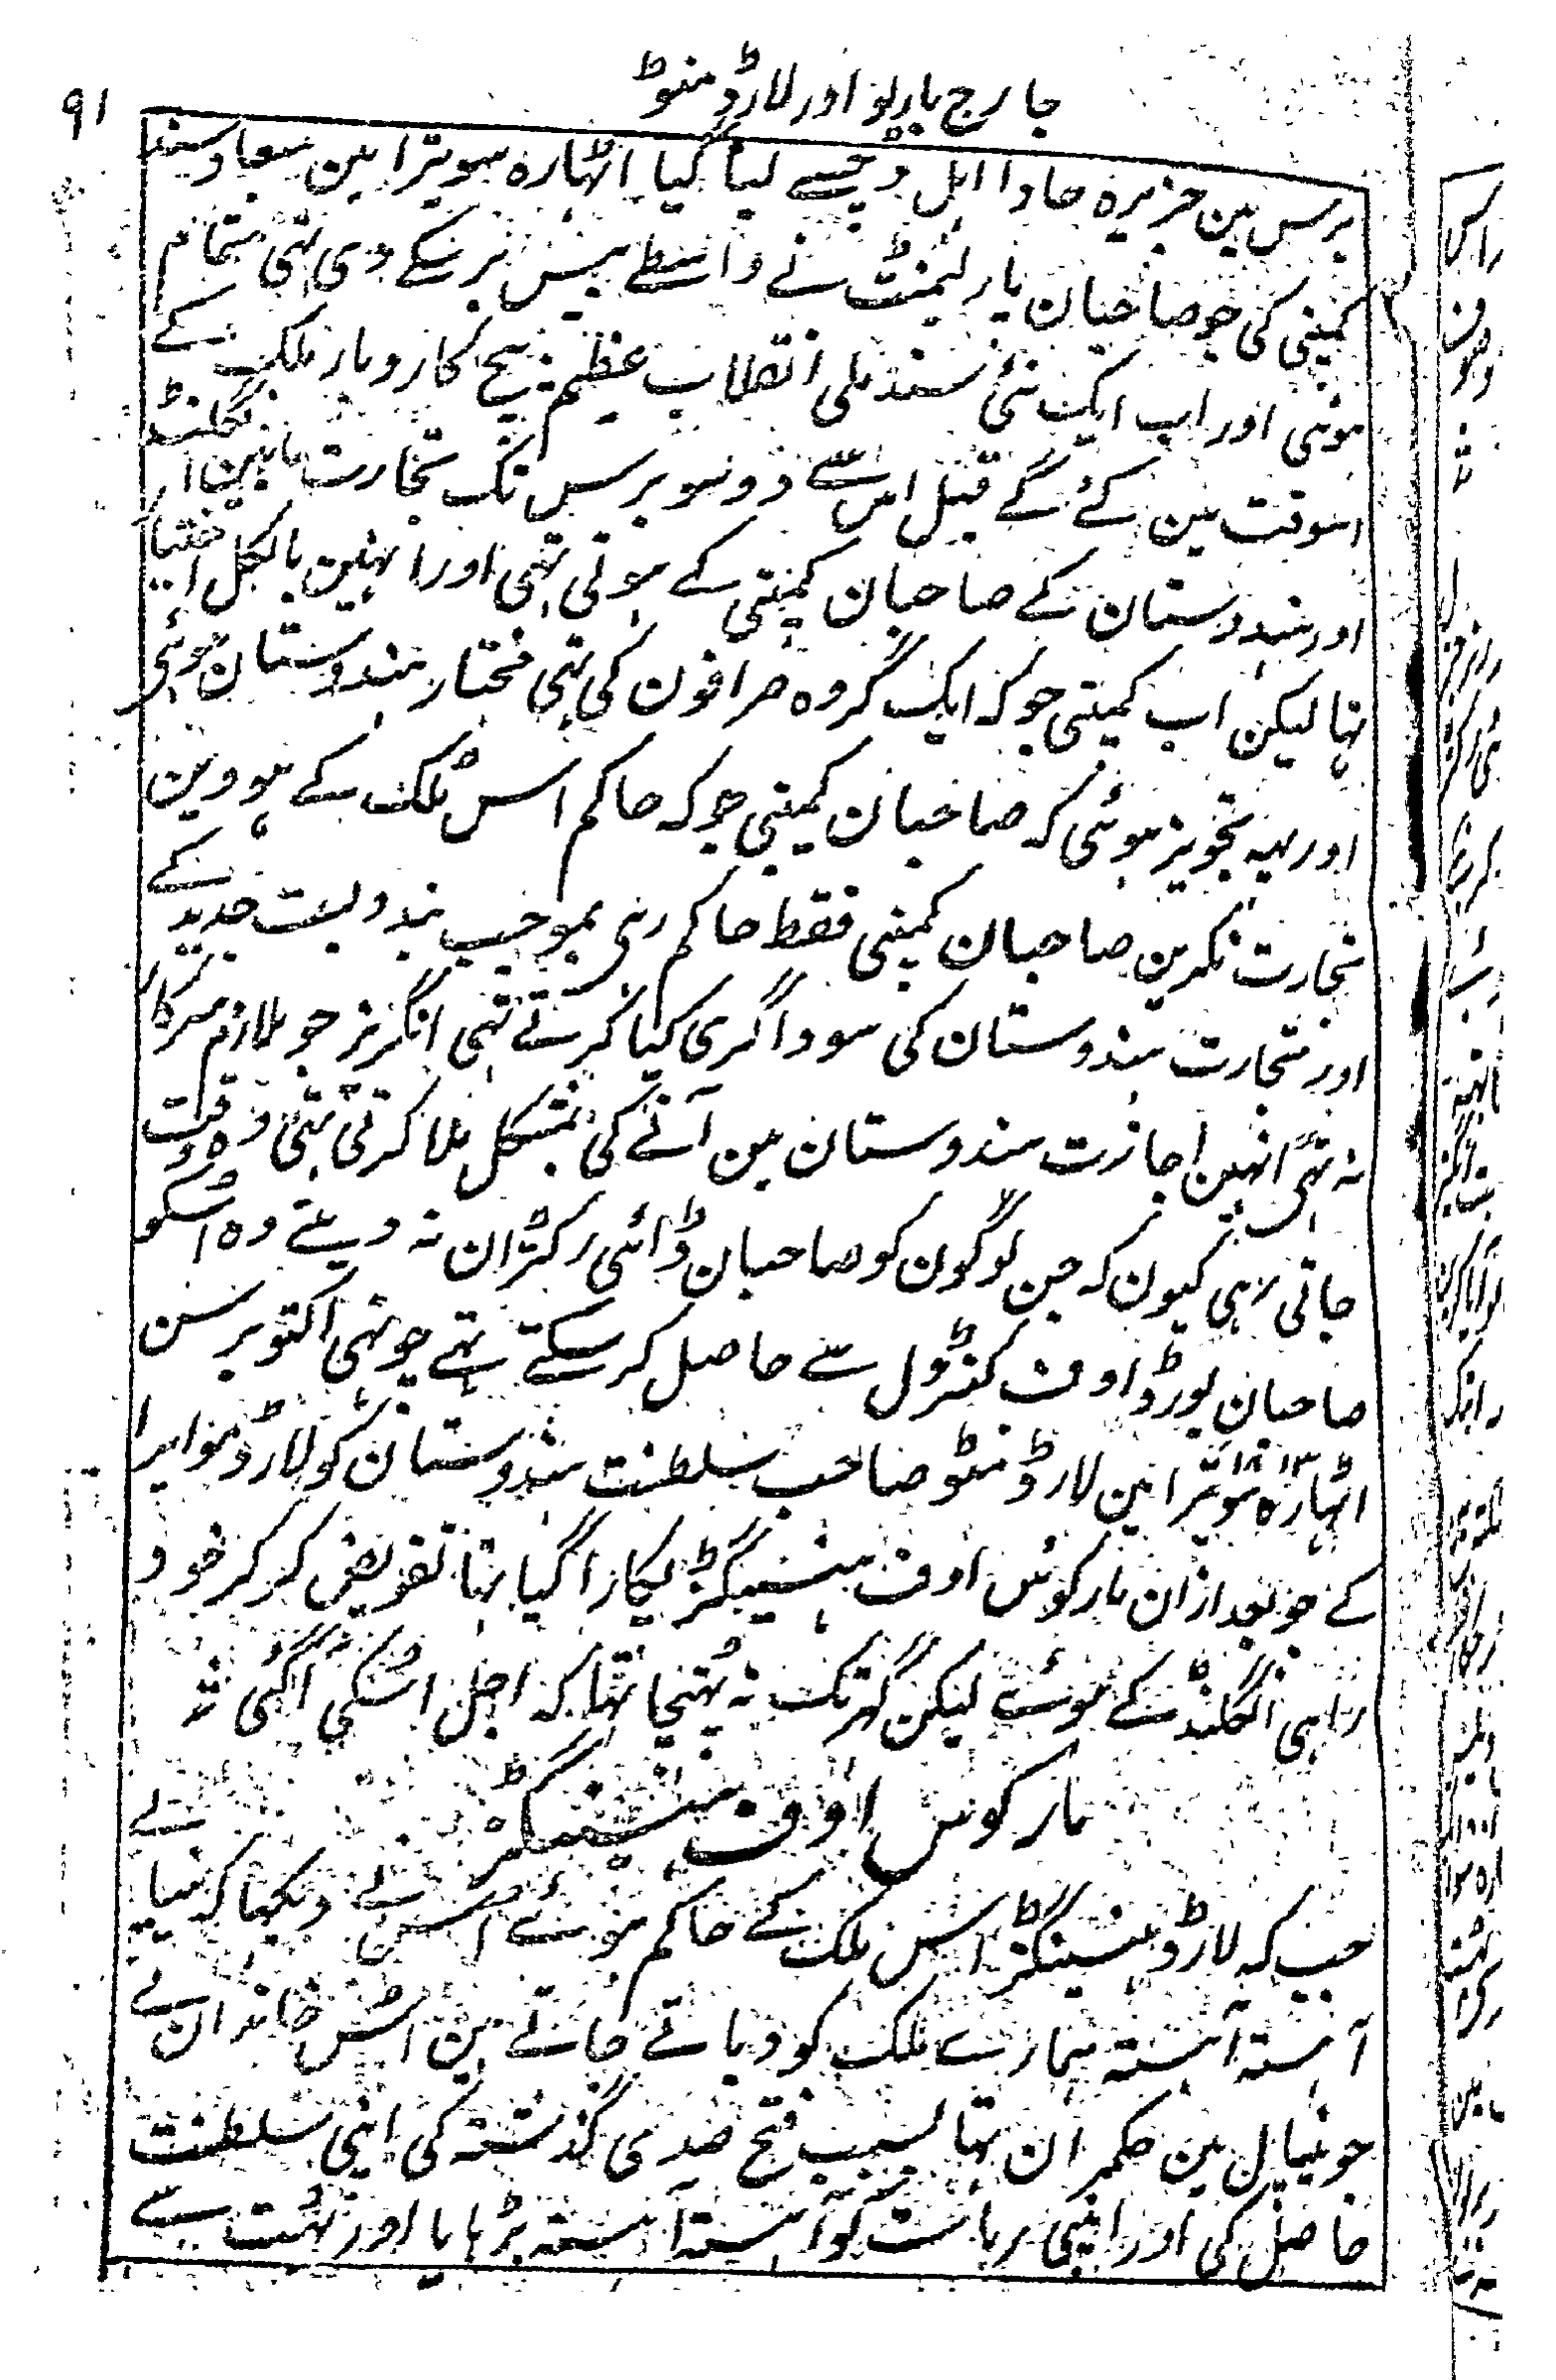 جارج بارلو اور لارڈ منٹو
۹۱
برس مین جزیرہ جاوا اہل ڈچ سے لیا گیا اٹہارہ سوتیرا مین میعاد سند
کمپنی کی جو صاحبان پارلیمنٹ نے واسطے بیس برس کے دی تہی تمام
ہوئی اور اب ایک نئی سند ملی انقلاب عظیم بیچ کاروبار ملک کے
اسوقت مین کئے گے قبل اس سے دو سو برس تک تجارت مابین انگلنڈ
اور ہندوستان کے صاحبان کمپنی کے ہوتی تہی اور انہین بالکل اختیار
تہا لیکن اب کمپنی جو کہ ایک گروہ صرافون کی تہی مختار ہندوستان ہوئی
اور یہہ تجویز ہوئی کہ صاحبان کمپنی جو کہ حاکم اس ملک کے ہووین
تجارت نکرین صاحبان کمپنی فقط حاکم رہی بموجب بندوبست جدید کے
اور تجارت ہندوستان کی سوداگری کیا کرتے تہی انگریز جو ملازم سرکار
نہ تہی انہین اجازت ہندوستان مین آنے کی بمشکل ملا کرتی تہی وہ دقت
جاتی رہی کیون کہ جن لوگون کو صاحبان ڈائی رکٹران نہ دیتے وہ اسکو
صاحبان بورڈ اوف کنٹرول سے حاصل کر سکتے تہے چوتہی اکتوبر سن
اٹہارہ سوتیرا ۱۸۱۳ مین لارڈ منٹو صاحب سلطنت ہندوستان کو لارڈ موایرا
کے جو بعد ازان مارکوئس اوف ہنسیٹنگز پکارا گیا تہا تفویض کر کر خود
راہی انگلنڈ کے ہوئے لیکن گہر تک نہ پہنچا تہا کہ اجل اسکی آگئی
مارکوئس اوف ہسیٹنگز
جب کہ لارڈ ہسیٹنگز اس ملک کے حاکم ہوئے اسنے دیکہا کہ نیپالے
آہستہ آہستہ ہمارے ملک کو دباتے جاتے ہین اس خاندان نے
جو نیپال مین حکمران تہا بسبب فتح صدی گذشتہ کی اپنی سلطنت
حاصل کی اور اپنی ریاست کو آہستہ آہستہ بڑہایا اور بہت سے